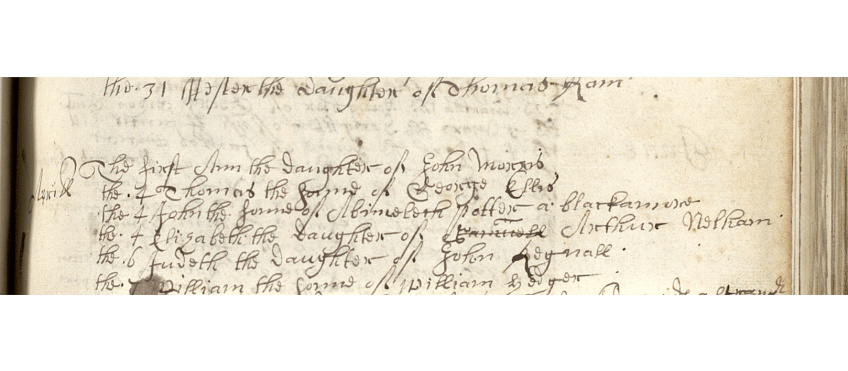 the . 31 Hester the daughter of Thomas Ram
Aprill The first Ann the daughter of John Morris
the . 4 Thomas the sonne of George Ellis
the 4 John the sonne of Abimelech Potter a blackamore
the . 4 Elizabeth the daughter of Arthur Nelham
the . 6 Judeth the daughter of John Regnall
the . William the sonne of William Hedger